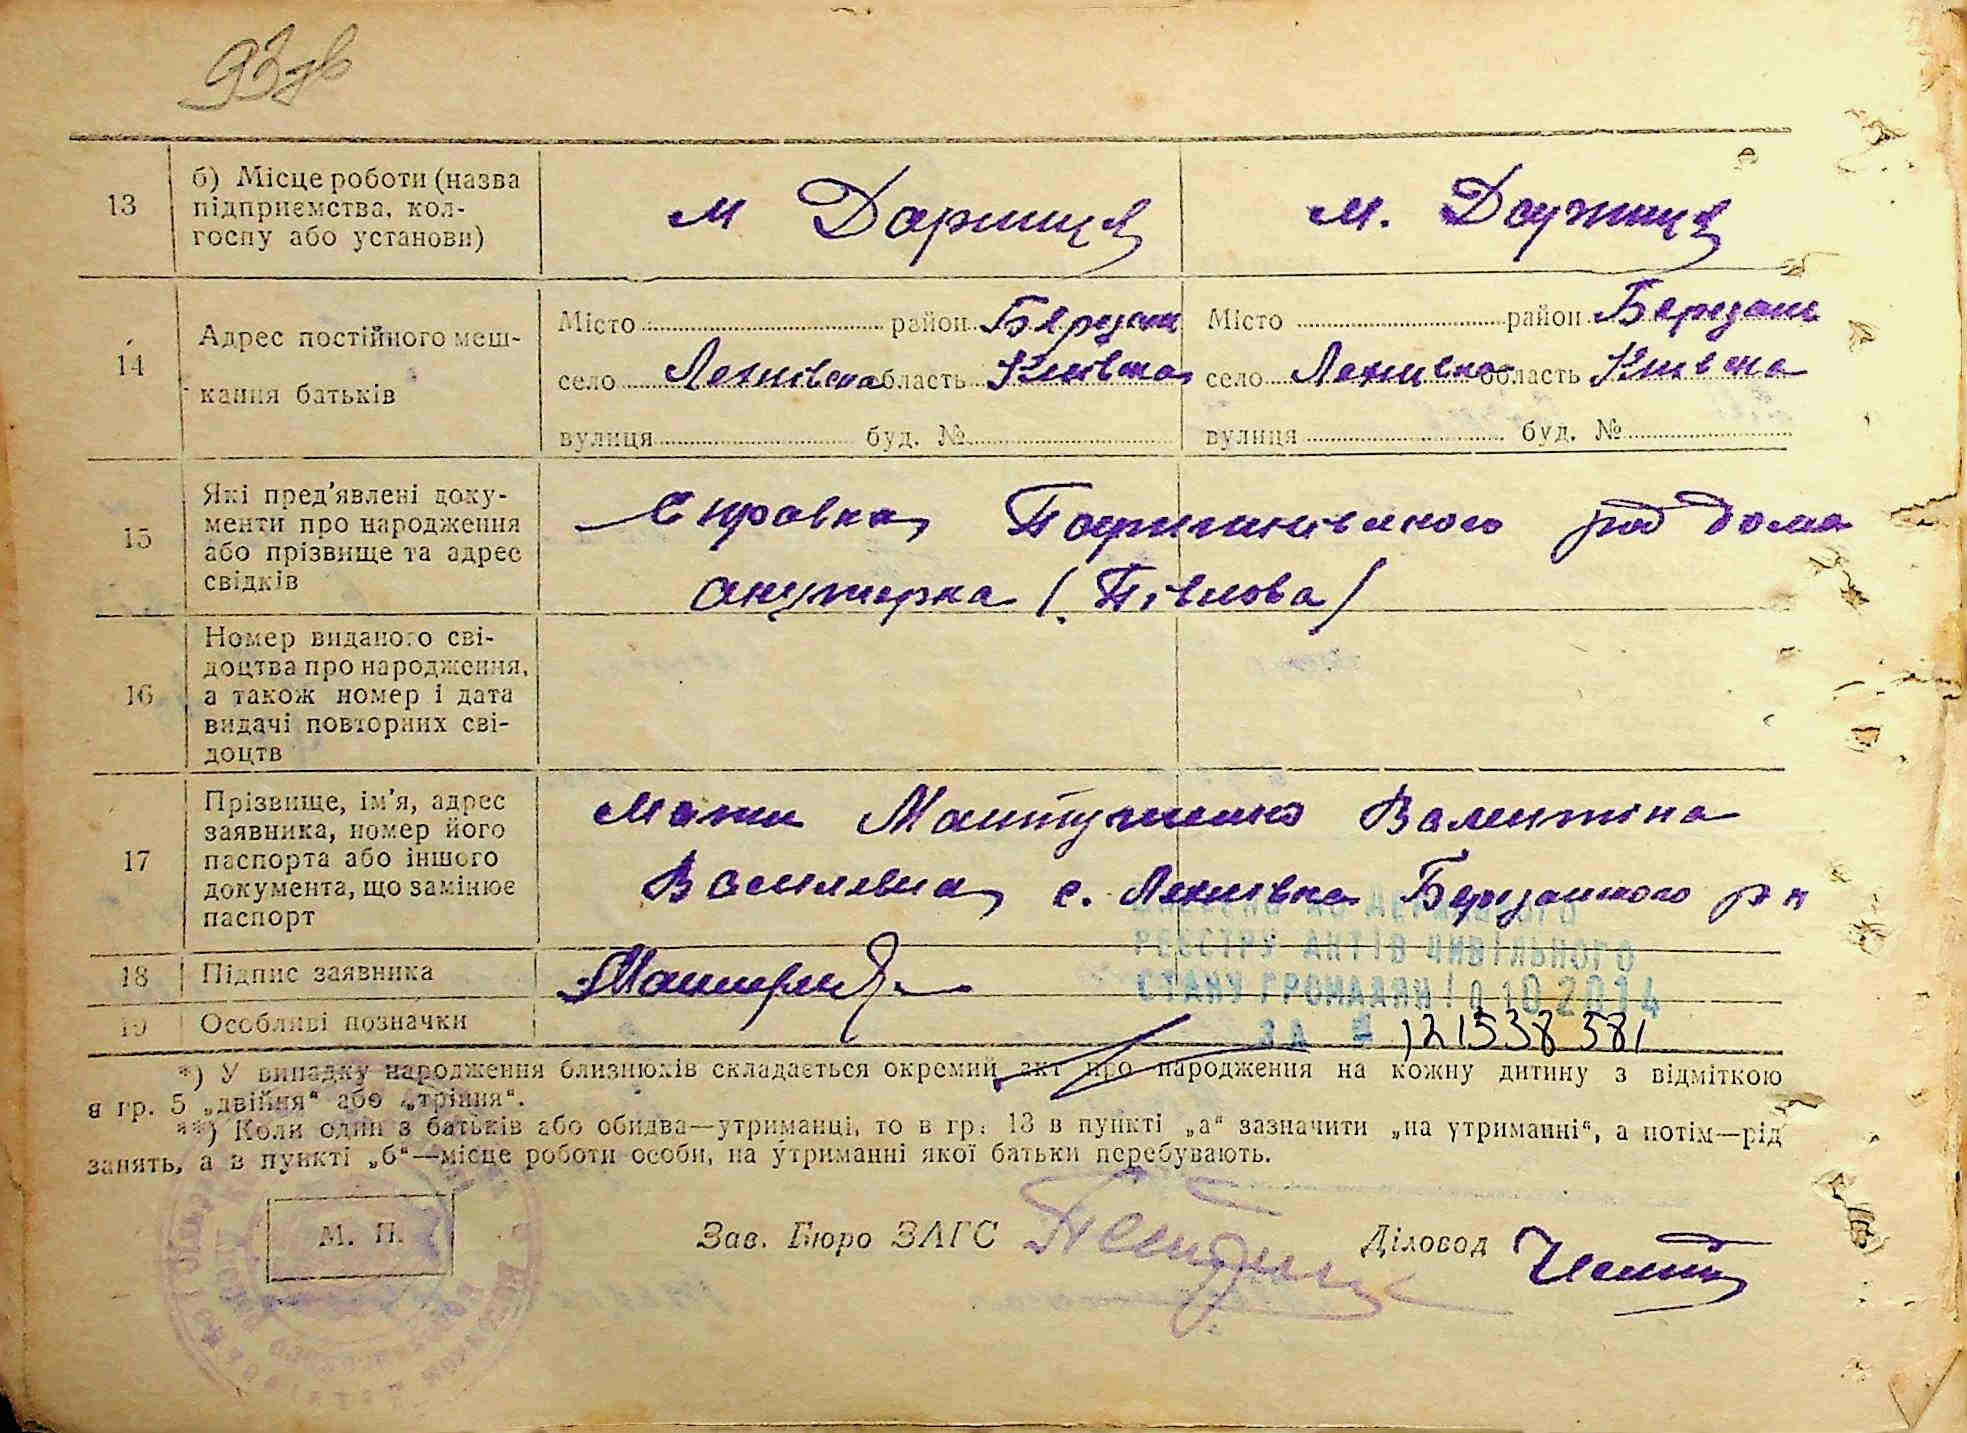 93 зв
13
б) Місце роботи (назва
підприємства, кол-
госпу або установи)
м Дарниця
м. Дарниця
14
Адрес постійного меш-
кання батьків
Місто район Березан
село Лехнівка область Київська
вулиця буд. №
Місто район Березан
село Лехнівка область Київська
вулиця буд. №
15
Які пред'явлені доку-
менти про народження
або прізвище та адрес
свідків
Справка род дома
акушерка
16
Номер виданого сві-
доцтва про народження,
а також номер і дата
видачі повторних сві-
доцтв
17
Прізвище, ім'я, адрес
заявника, номер його
паспорта або іншого
документа, що замінює
паспорт
Мати Валентина
Василевна с. Лехнівка Березанского р н
18
Підпис заявника
19
Особливі позначки
ДЕРЖАВНОГО
РЕЄСТРУ АКТІВ ЦИВІЛЬНОГО
СТАНУ ГРОМАДЯН 10 2014
ЗА № 121538581
*) У випадку народження близнюків складається окремий акт про народження на кожну дитину з відміткою
в гр. 5 „двійня“ або „трійня“.
**) Коли один з батьків або обидва—утриманці, то в гр. 13 в пункті „а“ зазначити „на утриманні“, а потім—рід
занять, а в пункті „б“—місце роботи особи, на утриманні якої батьки перебувають.
М. П.
Зав. Бюро ЗАГС
Діловод